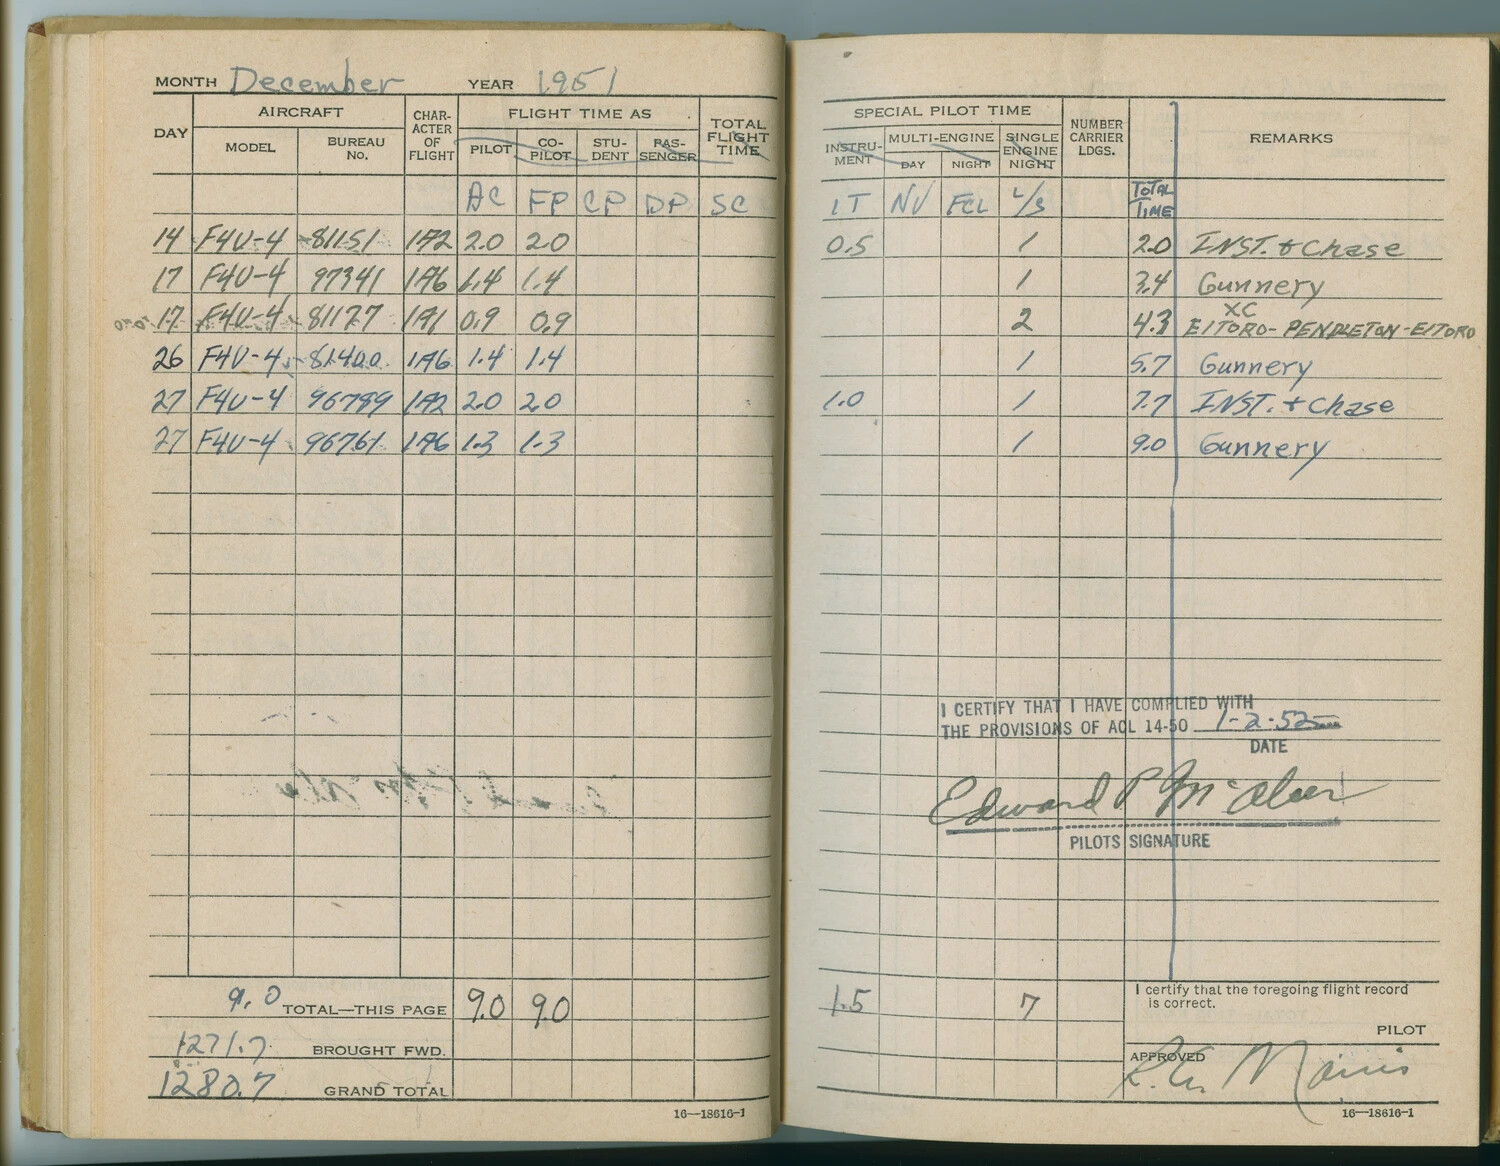 MONTH December YEAR 1951
DAY AIRCRAFT CHAR-ACTER OF FLIGHT FLIGHT TIME AS TOTAL FLIGHT TIME
MODEL BUREAU No. PILOT CO-PILOT STU-DENT PAS-SENGER
AC FP CP DP SC
14 F4U-4 81151 1A2 2.0 2.0
17 F4U-4 97341 1A6 1.4 1.4
17 F4U-4 81177 1A1 0.9 0.9
26 F4U-4 81400 1A6 1.4 1.4
27 F4U-4 96789 1A2 2.0 2.0
27 F4U-4 96761 1A6 1.3 1.3
9.0 TOTAL—THIS PAGE 9.0 9.0
1271.7 BROUGHT FWD.
1280.7 GRAND TOTAL
16—18616-1
SPECIAL PILOT TIME NUMBER CARRIER LDGS. REMARKS
INSTRU-MENT MULTI-ENGINE SINGLE ENGINE NIGHT
DAY NIGHT
IT NV FCL L/S TOTAL TIME
0.5 1 2.0 INST. + Chase
1 3.4 Gunnery
XC
2 4.3 ElTORO-PENDLETON-ElTORO
1 5.7 Gunnery
1.0 1 7.7 INST. + Chase
1 9.0 Gunnery
I CERTIFY THAT I HAVE COMPLIED WITH
THE PROVISIONS OF ACL 14-50 1-2-52
DATE
Edward P McAleer
PILOTS SIGNATURE
1.5 7
I certify that the foregoing flight record
is correct.
PILOT
APPROVED
16—18616-1